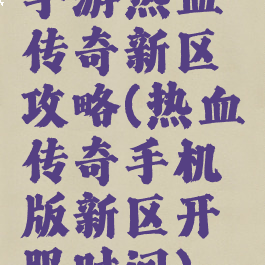 手游热血
传奇新区
攻略(热血
传奇手机
版新区开
服时间)